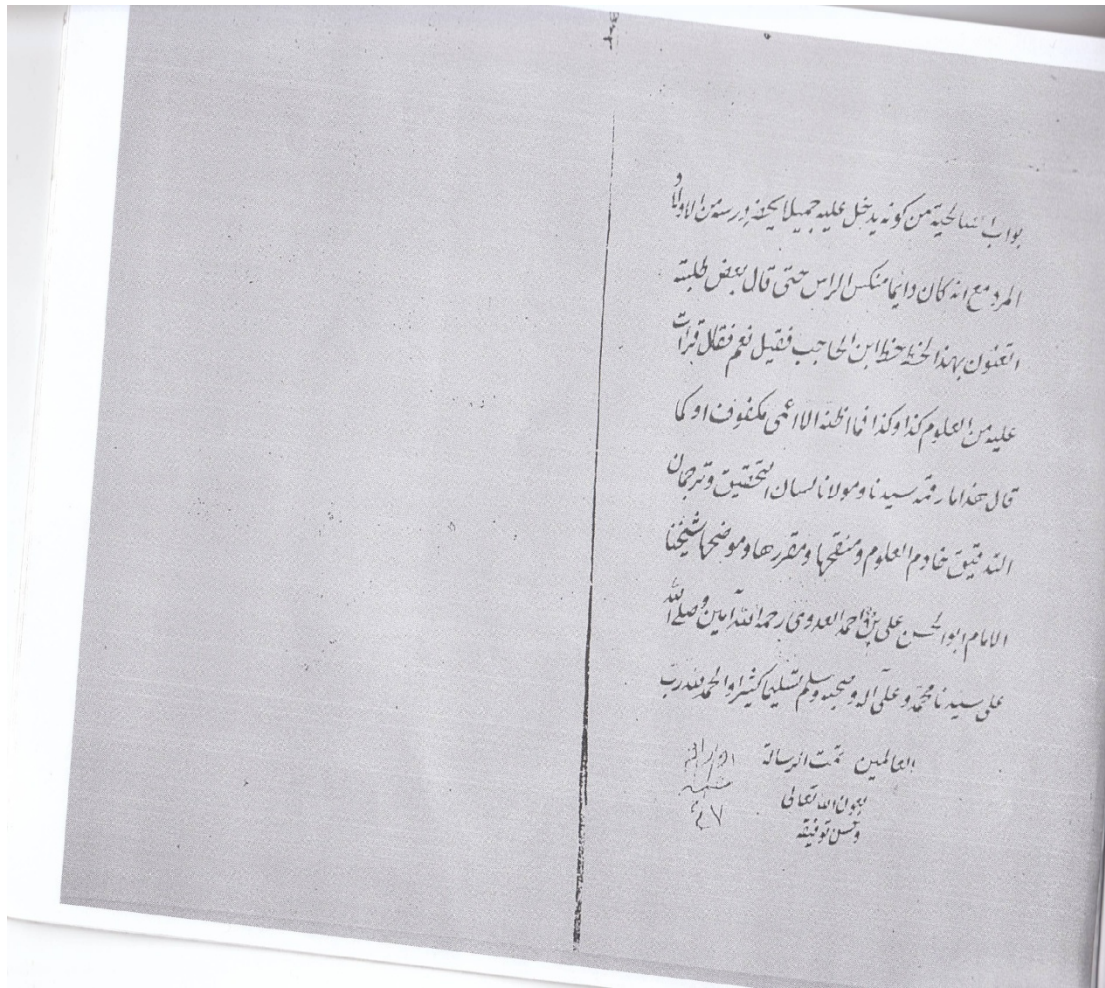 بواب الصالحية من كونه يدخل عليه جميلا يحضر درسه من الاولاد
المرد مع انه كان دايما منكس الراس حتى قال بعض طلبته
اتعنون بهذا الخط خط ابن الحاجب فقيل نعم فقال قرات
عليه من العلوم كذا وكذا فما اظنه الا اعمى مكفوف او كما
قال هذا ما رقمه سيدنا ومولانا لسان التحقيق وترجمان
التدقيق خادم العلوم ومنقحها ومقررها وموضحها شيخنا
الامام ابو الحسن على بن احمد العدوى رحمه الله آمين وصلى الله
على سيدنا محمد وعلى اله وصحبه وسلم تسليما كثيرا والحمد لله رب
العالمين تمت الرسالة
بعون الله تعالى
وحسن توفيقه